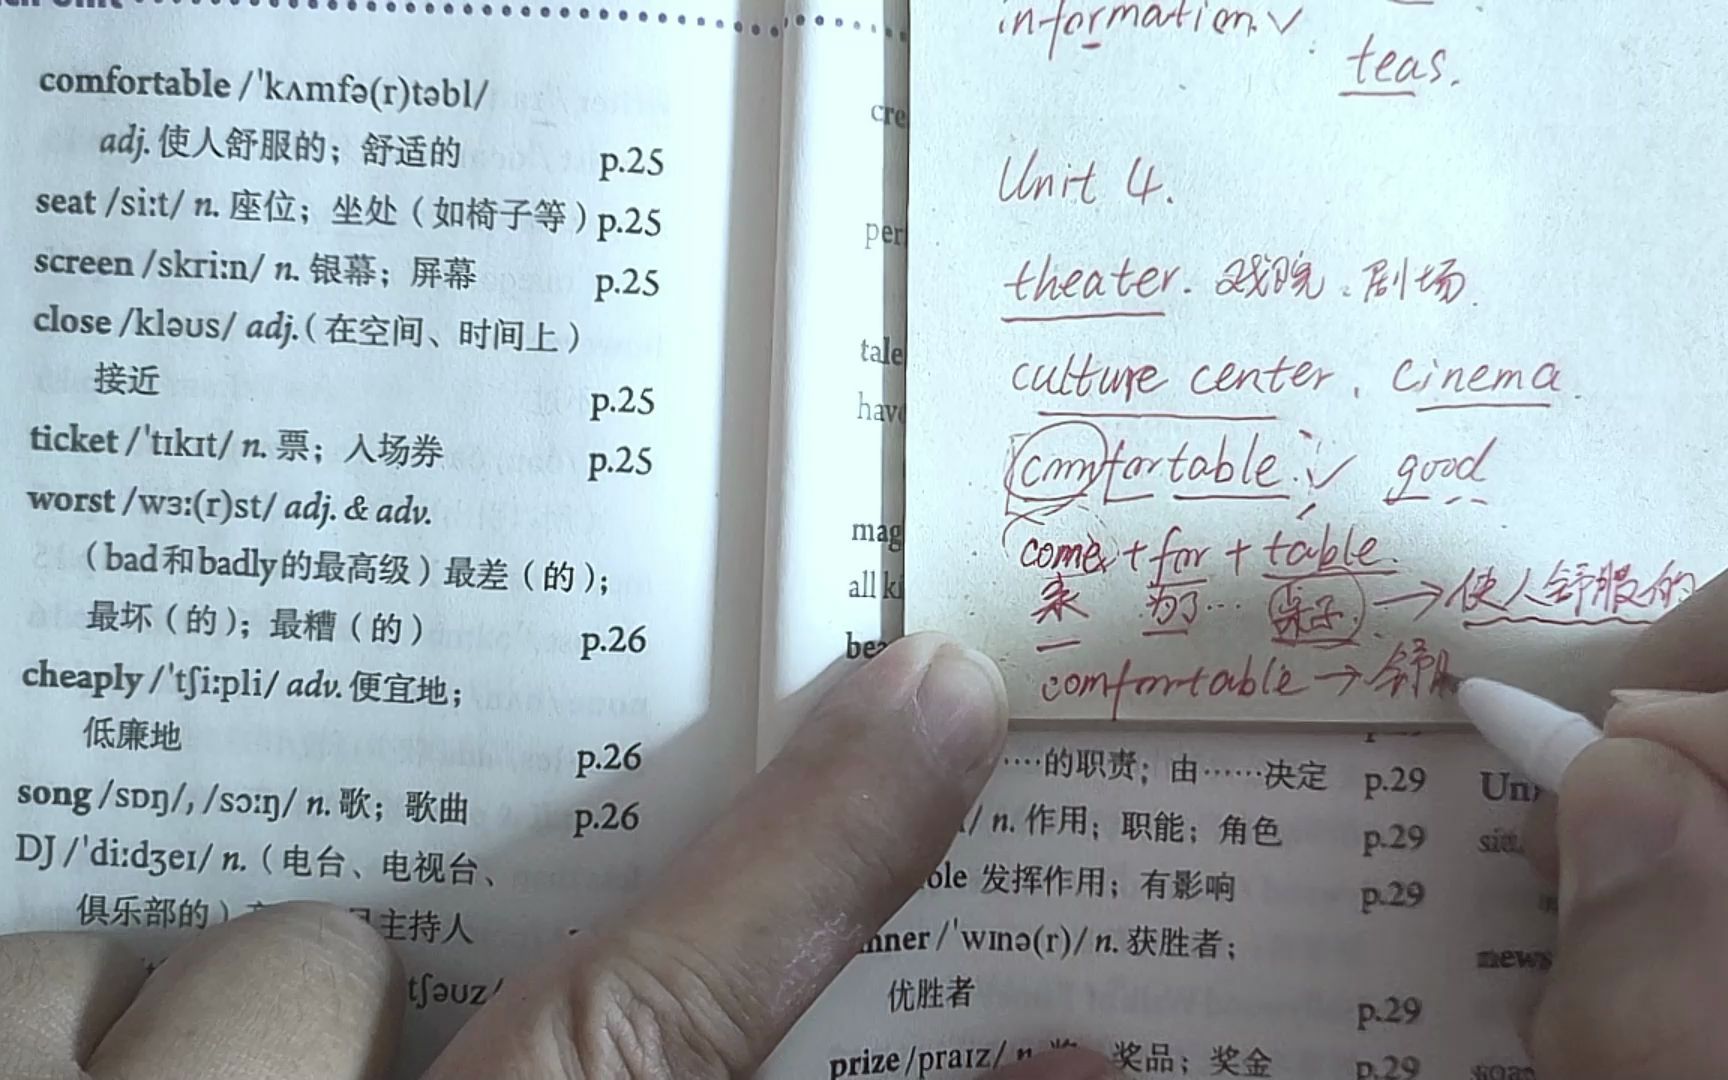 comfortable /ˈkʌmfə(r)təbl/
adj. 使人舒服的；舒适的 p.25
seat /siːt/ n. 座位；坐处（如椅子等）p.25
screen /skriːn/ n. 银幕；屏幕 p.25
close /kləʊs/ adj.（在空间、时间上）
接近 p.25
ticket /ˈtɪkɪt/ n. 票；入场券 p.25
worst /wɜː(r)st/ adj. & adv.
（bad和badly的最高级）最差（的）；
最坏（的）；最糟（的） p.26
cheaply /ˈtʃiːpli/ adv. 便宜地；
低廉地 p.26
song /sɒŋ/, /sɔːŋ/ n. 歌；歌曲 p.26
DJ /ˈdiːdʒeɪ/ n.（电台、电视台、
俱乐部的）
主持人
tʃəʊz/
information. ✓
teas.
Unit 4.
theater. 戏院、剧场.
culture center. cinema
comfortable. ✓ good
come + for + table.
来 为了… 桌子 → 使人舒服的
comfortable → 舒服
cre
per
tale
have
mag
all ki
bea
……的职责；由……决定 p.29
/ n. 作用；职能；角色 p.29
ole 发挥作用；有影响 p.29
nner /ˈwɪnə(r)/ n. 获胜者；
优胜者 p.29
prize /praɪz/ n. 奖品；奖金 p.29
news